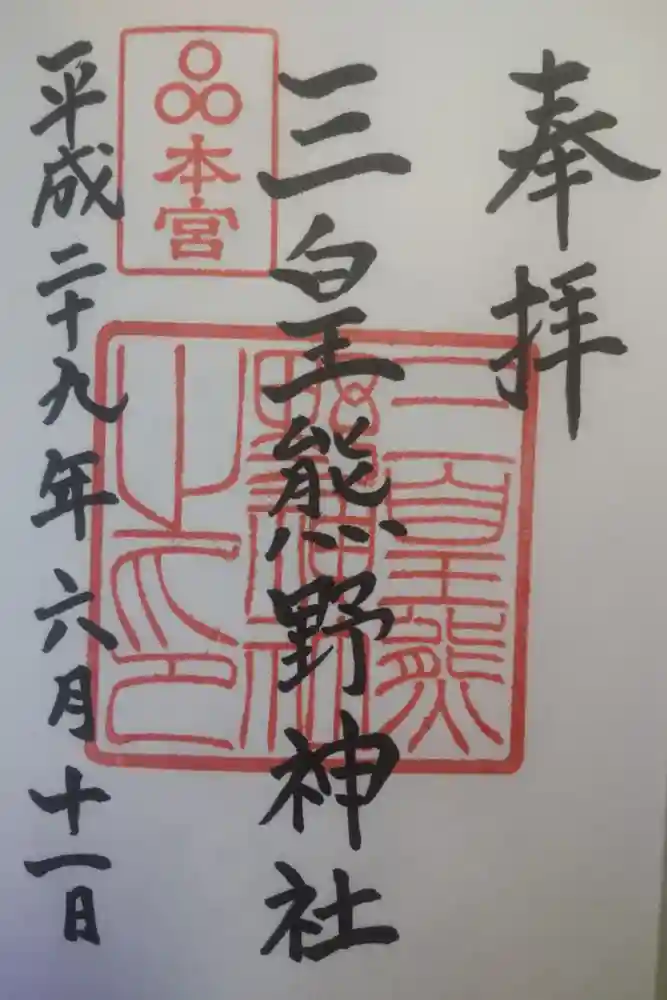 奉拝
三皇熊野神社
本宮
三皇熊野神社之印
平成二十九年六月十一日